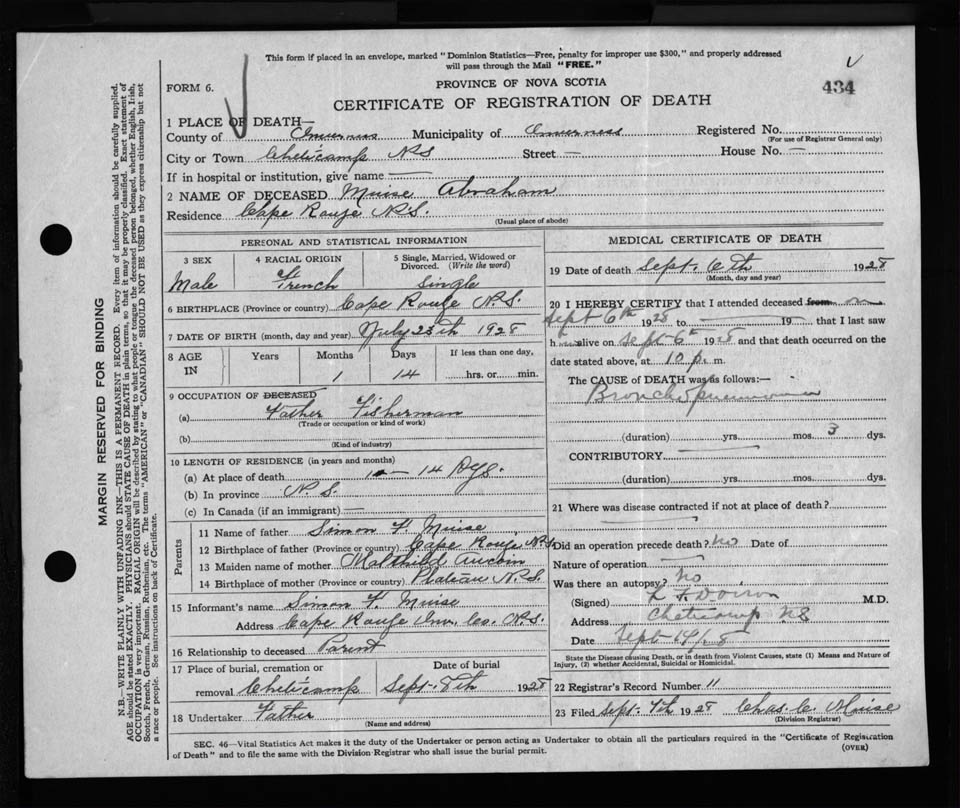 This form if placed in an envelope, marked "Dominion Statistics—Free, penalty for improper use $300," and properly addressed
will pass through the Mail "FREE."
FORM 6.
PROVINCE OF NOVA SCOTIA
434
CERTIFICATE OF REGISTRATION OF DEATH
1 PLACE OF DEATH—
County of Inverness Municipality of Inverness Registered No.
(For use of Registrar General only)
City or Town Cheticamp N.S Street — House No. —
If in hospital or institution, give name —
2 NAME OF DECEASED Muise Abraham
Residence Cape Rouge N.S.
(Usual place of abode)
PERSONAL AND STATISTICAL INFORMATION
3 SEX 4 RACIAL ORIGIN 5 Single, Married, Widowed or
Divorced. (Write the word)
Male French Single
6 BIRTHPLACE (Province or country) Cape Rouge N.S.
7 DATE OF BIRTH (month, day and year) July 23th 1928
8 AGE IN Years Months Days If less than one day,
1 14 hrs. or min.
9 OCCUPATION OF DECEASED
(a) Father Fisherman
(Trade or occupation or kind of work)
(b)
(Kind of industry)
10 LENGTH OF RESIDENCE (in years and months)
(a) At place of death 1 — 14 Dys.
(b) In province N.S.
(c) In Canada (if an immigrant) —
Parents
11 Name of father Simon F. Muise
12 Birthplace of father (Province or country) Cape Rouge N.S.
13 Maiden name of mother Mathilde Aucoin
14 Birthplace of mother (Province or country) Plateau N.S.
15 Informant's name Simon F. Muise
Address Cape Rouge Inv. Co. N.S.
16 Relationship to deceased Parent
17 Place of burial, cremation or Date of burial
removal Cheticamp Sept. 8th 1928
18 Undertaker Father
(Name and address)
MEDICAL CERTIFICATE OF DEATH
19 Date of death Sept. 6th 1928
(Month, day and year)
20 I HEREBY CERTIFY that I attended deceased from on
Sept 6th 1928 to 19 that I last saw
h alive on Sept 6th 1928 and that death occurred on the
date stated above, at 10 p. m.
The CAUSE of DEATH was as follows:—
Broncho pneumonia
(duration) yrs. mos. 3 dys.
CONTRIBUTORY
(duration) yrs. mos. dys.
21 Where was disease contracted if not at place of death?
Did an operation precede death? No Date of
Nature of operation
Was there an autopsy? No
(Signed) M.D.
Address Cheticamp NS
Date Sept 14/28
State the Disease causing Death, or in death from Violent Causes, state (1) Means and Nature of
Injury, (2) whether Accidental, Suicidal or Homicidal.
22 Registrar's Record Number 11
23 Filed Sept. 7th 1928 Chas. C. Muise
(Division Registrar)
SEC. 46—Vital Statistics Act makes it the duty of the Undertaker or person acting as Undertaker to obtain all the particulars required in the "Certificate of Registration
of Death" and to file the same with the Division Registrar who shall issue the burial permit.
(OVER)
MARGIN RESERVED FOR BINDING
N.B.—WRITE PLAINLY WITH UNFADING INK—THIS IS A PERMANENT RECORD. Every item of information should be carefully supplied.
AGE should be stated EXACTLY. PHYSICIANS should STATE CAUSE OF DEATH in plain terms, so that it may be properly classified. Exact statement of
OCCUPATION is very important. RACIAL ORIGIN will be described by stating to what people or tongue the deceased person belonged, whether English, Irish,
Scotch, French, German, Russian, Ruthenian, etc. The terms "AMERICAN" or "CANADIAN" SHOULD NOT BE USED as they express citizenship but not
a race or people. See instructions on back of Certificate.